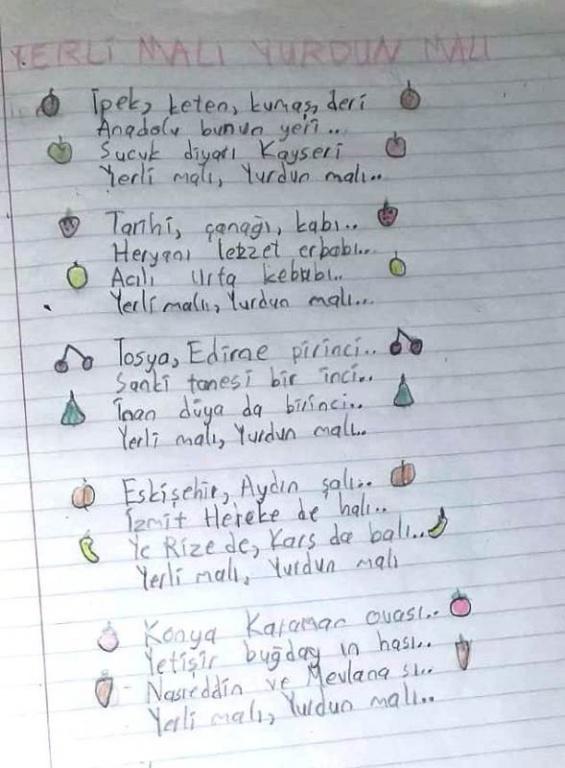 YERLİ MALI YURDUN MALI
İpek, keten, kumaş, deri
Anadolu bunun yeri...
Sucuk diyarı Kayseri
Yerli malı, Yurdun malı..
Tarihi, çanağı, kabı..
Heryanı lezzet erbabı...
Acılı Urfa kebabı..
Yerli malı, Yurdun malı...
Tosya, Edirne pirinci..
Sanki tanesi bir inci..
İnan düya da birinci..
Yerli malı, Yurdun malı..
Eskişehir, Aydın şalı..
İzmit Hereke de halı..
Ye Rize de, Kars da balı..
Yerli malı, Yurdun malı
Konya Karaman ovası..
Yetişir buğday ın hası..
Nasreddin ve Mevlana sı..
Yerli malı, Yurdun malı..